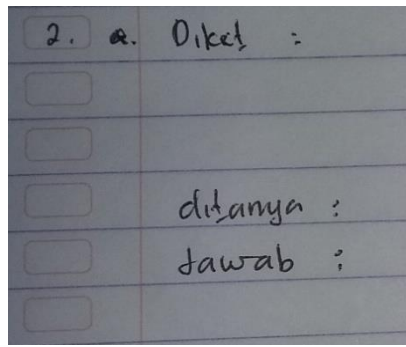 2. a. Diket :
ditanya :
Jawab :